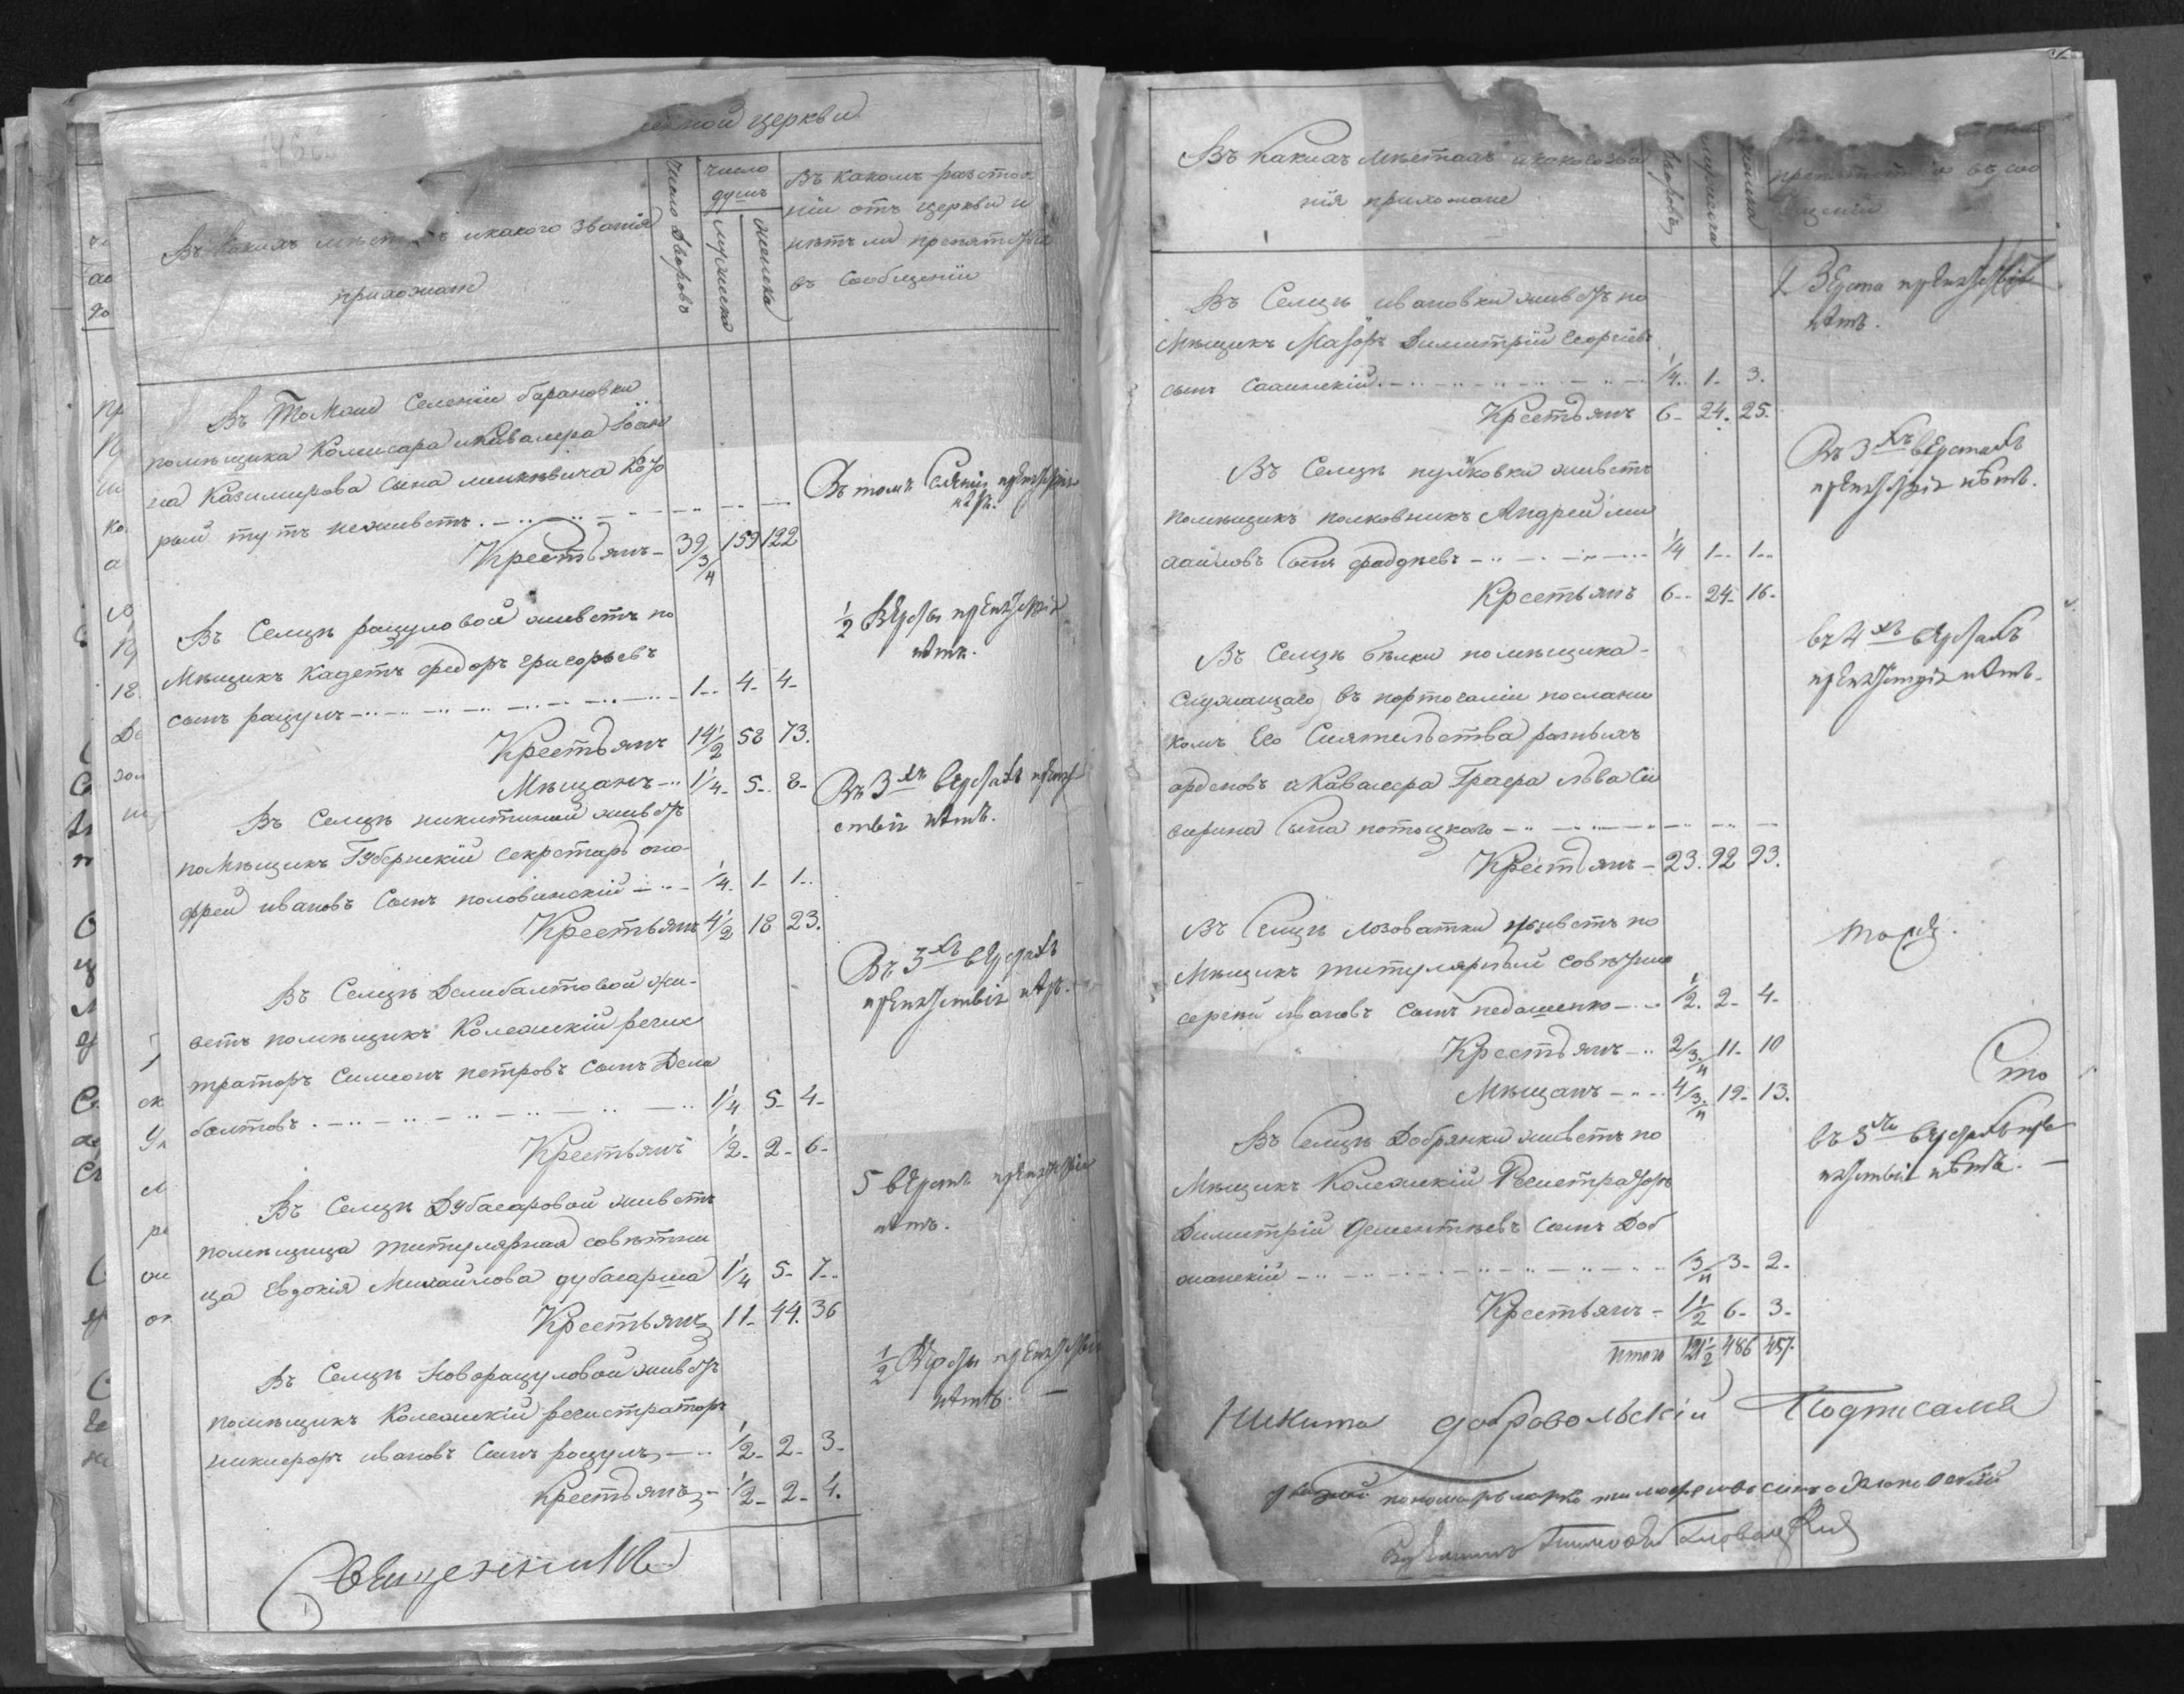 церкви
Въ какихъ мѣстахъ и какого званія
прихожане
число дворовъ
число
душъ
мужеска
женска
Въ какомъ разстоя
ніи отъ церкви и
нѣтъ ли препятствія
въ сообщеніи
Въ томъ селеніи барановки
помѣщика Комисара и кавалера Іоан
на Казимирова сына миткевича кото
рый тутъ неживетъ
Въ томъ селеніи препятствія
нѣтъ.
Крестьянъ 39 3/4 159 122
Въ Селцѣ рацуловой живетъ по
мѣщикъ кадетъ федоръ григорьевъ
сынъ рацулъ 1 4 4
1/2 версты препятствія
нѣтъ.
Крестьянъ 14 1/2 58 73.
Мѣщанъ 1 1/4 5 8
Въ Селцѣ никитиной живетъ
помѣщикъ Губернскій секретарь оно
фрей ивановъ сынъ половинскій 1/4 1 1
Въ 3хъ верстахъ препят
ствія нѣтъ.
Крестьянъ 4 1/2 18 23.
Въ Селцѣ Делибалтовой жи-
ветъ помѣщикъ Колежскій регис
траторъ Симеонъ петровъ сынъ Дели
балтовъ 1 1/4 5 4
Въ 3хъ верстахъ
препятствія нѣтъ.
Крестьянъ 1/2 2 6
Въ Селцѣ Дубасаровой живетъ
помѣщица титулярная совѣтни
ца Евдокія Михайлова дубасарша 1 1/4 5 7
5 верстъ препятствія
нѣтъ.
Крестьянъ 11 44. 36
Въ Селцѣ Новорацуловой живетъ
помѣщикъ Колежскій регистраторъ
никифоръ ивановъ сынъ рацулъ 1/2 2 3
1/2 версты препятствія
нѣтъ.
Крестьянъ 1/2 2 4.
Священникъ
Въ какихъ мѣстахъ и какого зва
нія прихожане
дворовъ
мужеска
женска
препятствія въ соо
щеніи
Въ Селцѣ ивановки живетъ по
мѣщикъ Маіоръ Димитрій Георгіевъ
сынъ 1/4 1 3.
2 Верста препятствія
нѣтъ.
Крестьянъ 6 24. 25.
Въ Селцѣ пулковки живетъ
помѣщикъ полковникъ Андрей ми
хайловъ сынъ фадѣевъ 1/4 1 1
Въ 3хъ верстахъ
препятствія нѣтъ.
Крестьянъ 6 24 16
Въ Селцѣ бѣлки помѣщика
служащаго въ портогаліи послани
комъ Его Сіятельства разныхъ
орденовъ и Кавалера Графа льва Се
верина сына потоцкого
въ 4хъ верстахъ
препятствія нѣтъ.
Крестьянъ 23. 92 93.
Въ Селцѣ лозоватки живетъ по
мѣщикъ титулярный совѣтник
сергѣй ивановъ сынъ недашенко 1/2. 2 4
тожъ.
Крестьянъ 2 3/4 11 10
Мѣщанъ 4 3/4 19 13.
Въ Селцѣ Добрянки живетъ по
мѣщикъ Колежскій Регистраторъ
Димитрій Дементьевъ сынъ Доб
жанскій 3/4 3 2
въ 5ти верстахъ пре
пятствія нѣтъ.
Крестьянъ 1 1/2 6 3
итого 121 1/2 486 457.
Никита доброволскій Подписалъ